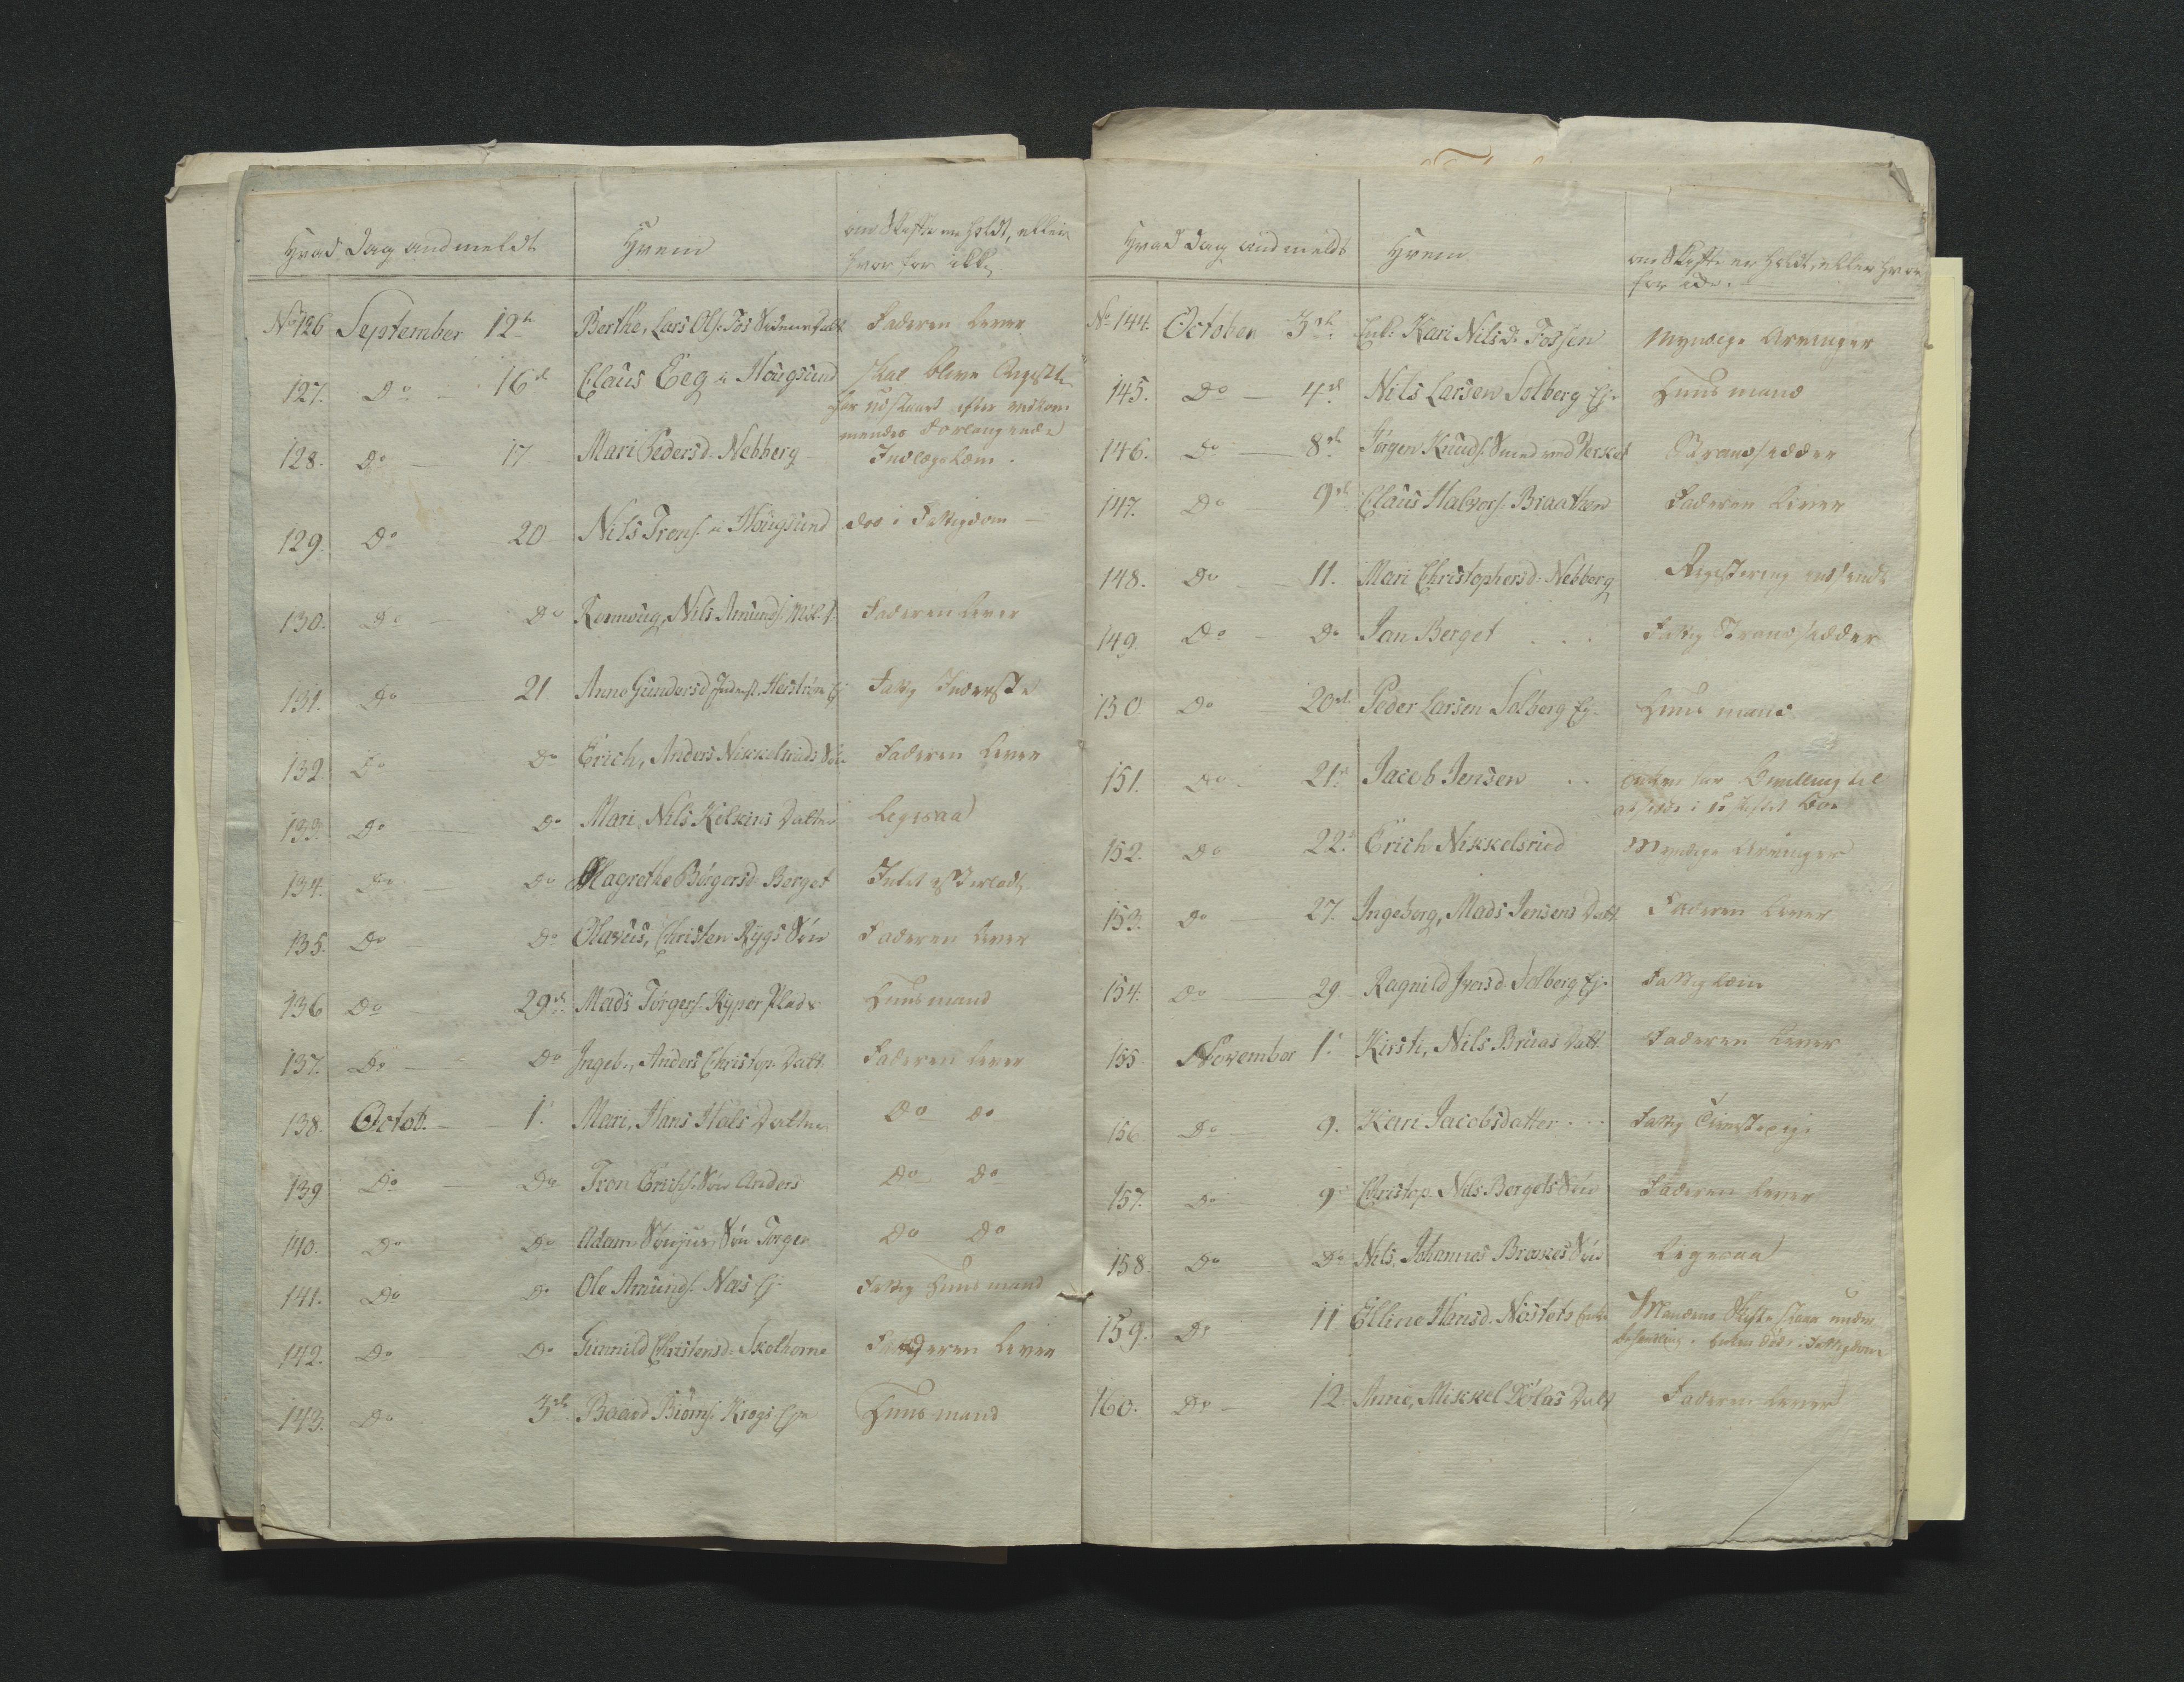 Hvad Dag andmeldt Hvem om Skifte er holdt, eller
hvor for ikke
No 126 September 12te Berthe, Lars Ols. Fos Datt Faderen lever
127. Do 16de Claus Eeg i Hougsund skal blive
efter vedkom-
mendes Forlangende
128. Do 17 Mari Pedersd. Nebberg Indlægs Lem.
129. Do 20 Nils Trons. i Hougsund død i Fattigdom
130. Do Do Ronnoug, Nils Amunds. Faderen lever
131. Do 21 Anne Gundersd. Fattig Inderste
132. Do Do Erich, Anders Nikkelsruds Søn Faderen lever
133. Do Do Mari, Nils Datter Ligesaa
134. Do Do Magrethe Børgersd. Berget Intet efterladt
135. Do Do Olavus, Christen Rygs Søn Faderen lever
136 Do 29de Mads Torgers. Ryper Plads Huusmand
137. Do Do Ingeb., Anders Christop. Datt. Faderen lever
138. Octob. 1. Mari, Hans Hals Datter Do Do
139 Do Do Tron Søn Anders Do Do
140. Do Do Adam Søn Torger Do Do
141. Do Do Ole Amunds. Næs Ej. Fattig Huusmand
142. Do Do Gunnild Christensd. Faderen lever
143. Do 3de Baard Biørns. Krogs Eje Huusmand
Hvad Dag andmeldt Hvem om Skifte er holdt, eller hvor
for ikke.
No 144. October 3de Enk: Kari Nilsd. Fossen Myndige Arvinger
145. Do 4de Nils Larsen Solberg Ej. Huusmand
146. Do 8de Jørgen Knuds. Smed ved Verket Strandsidder
147. Do 9de Claus Halvors. Braathen Faderen lever
148. Do 11. Mari Christophersd. Nebberg
149. Do Do Jan Berget Fattig Strandsidder
150 Do 20de Peder Larsen Solberg Ej. Huusmand
151. Do 21de Jacob Jensen Enken har Bevilling til
at sidde i uskiftet Boe
152. Do 22. Erich Nikkelsrud Myndige Arvinger
153. Do 27. Ingeborg, Mads Jensens Datt. Faderen lever
154. Do 29 Ragnild Iversd. Solberg Ej. Fattig Lem
155 November 1. Kirsti, Nils Bruas Datt. Faderen lever
156 Do 9. Kari Jacobsdatter Fattig Tienestepige
157. Do 9 Christop. Nils Bergets Søn Faderen lever
158. Do Do Nils, Johannes Brækes Søn Ligesaa
159. Do 11 Elline Hansd. Mandens Skifte staar under
behandling. Enken død i Fattigdom
160. Do 12. Anne, Mikkel Datt Faderen lever